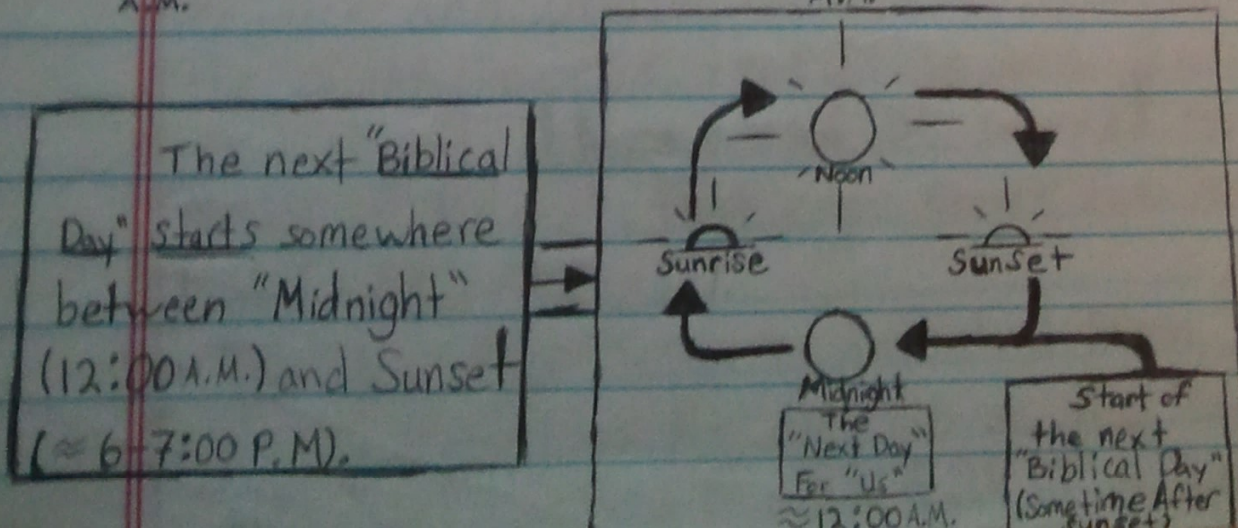 A.M.
The next "Biblical
Day" starts somewhere
between "Midnight"
(12:00 A.M.) and Sunset
(≈ 6-7:00 P.M).
Noon
Sunrise
Sunset
Midnight
The
"Next Day"
For "Us"
≈12:00 A.M.
Start of
the next
"Biblical Day"
(Sometime After
Sunset)